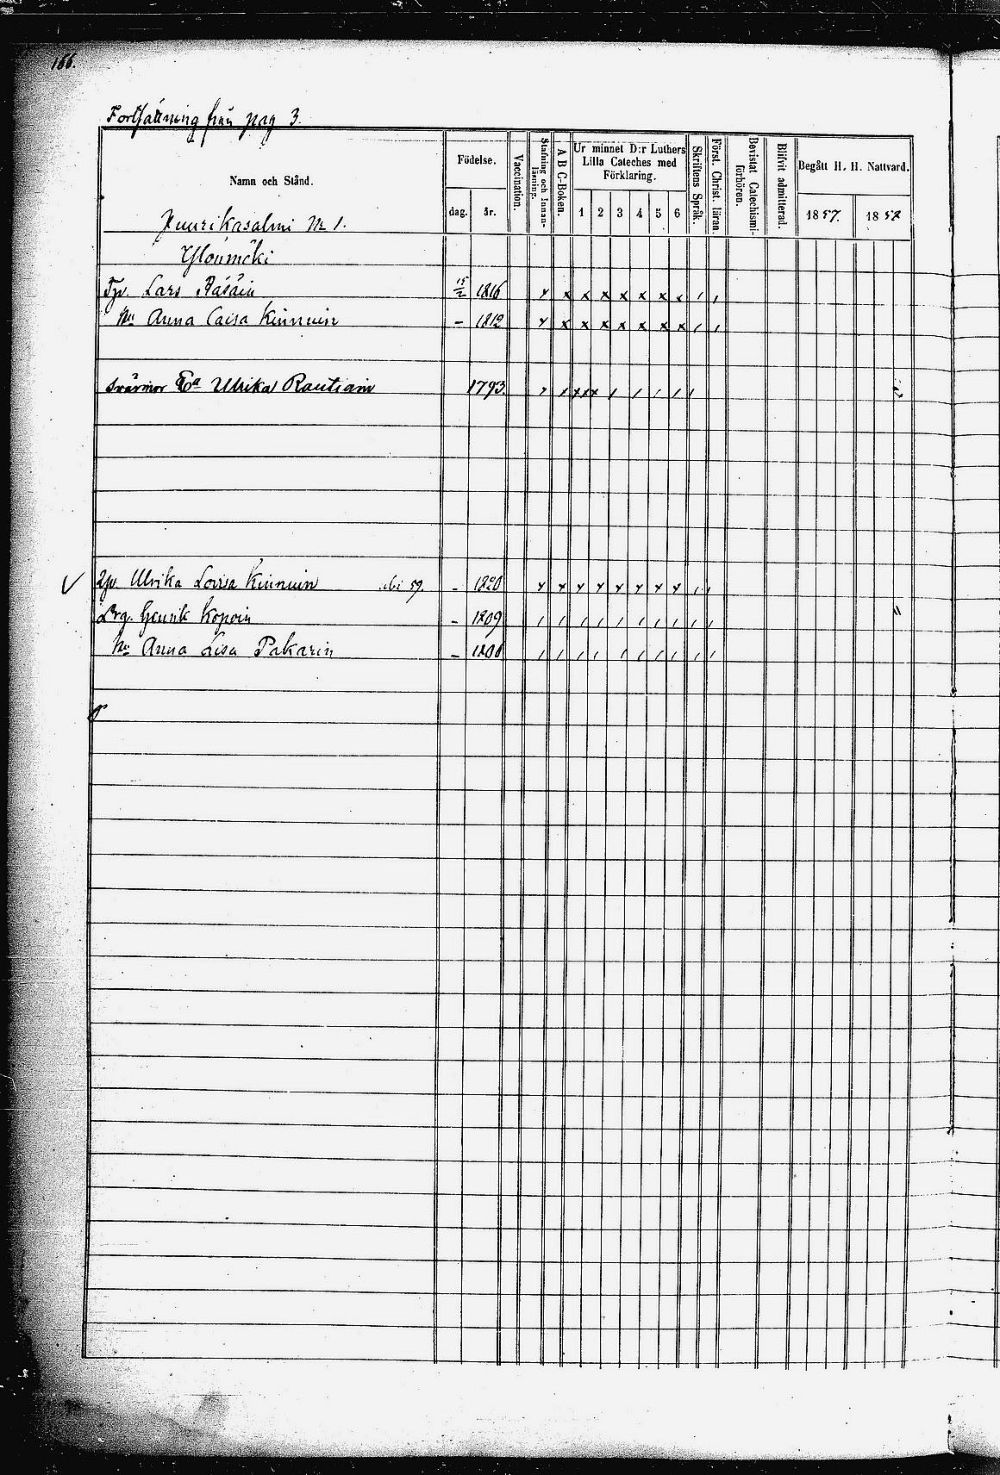 166.
Fortsättning från pag 3.
Namn och Stånd.
Födelse.
dag. år.
Vaccination.
Stafning och Innanläsning.
A B C-Boken.
Ur minnet D:r Luthers Lilla Cateches med Förklaring.
1 2 3 4 5 6
Skriftens Språk.
Först. Christ. läran.
Bevistat Catechismiförhören.
Blifvit admitterad.
Begått H. H. Nattvard.
1857. 1858
Juurikasalmi No 1.
Ylöimäki
Lars Räsäin 15/2 1816
Hu Anna Caisa Kinnuin – 1812
Svärmor Ea Ulrika Rautiain 1793.
Ulrika Lovisa Kinnuin 59. – 1820
Henrik Kopoin – 1809
Hu Anna Lisa Pakarin –